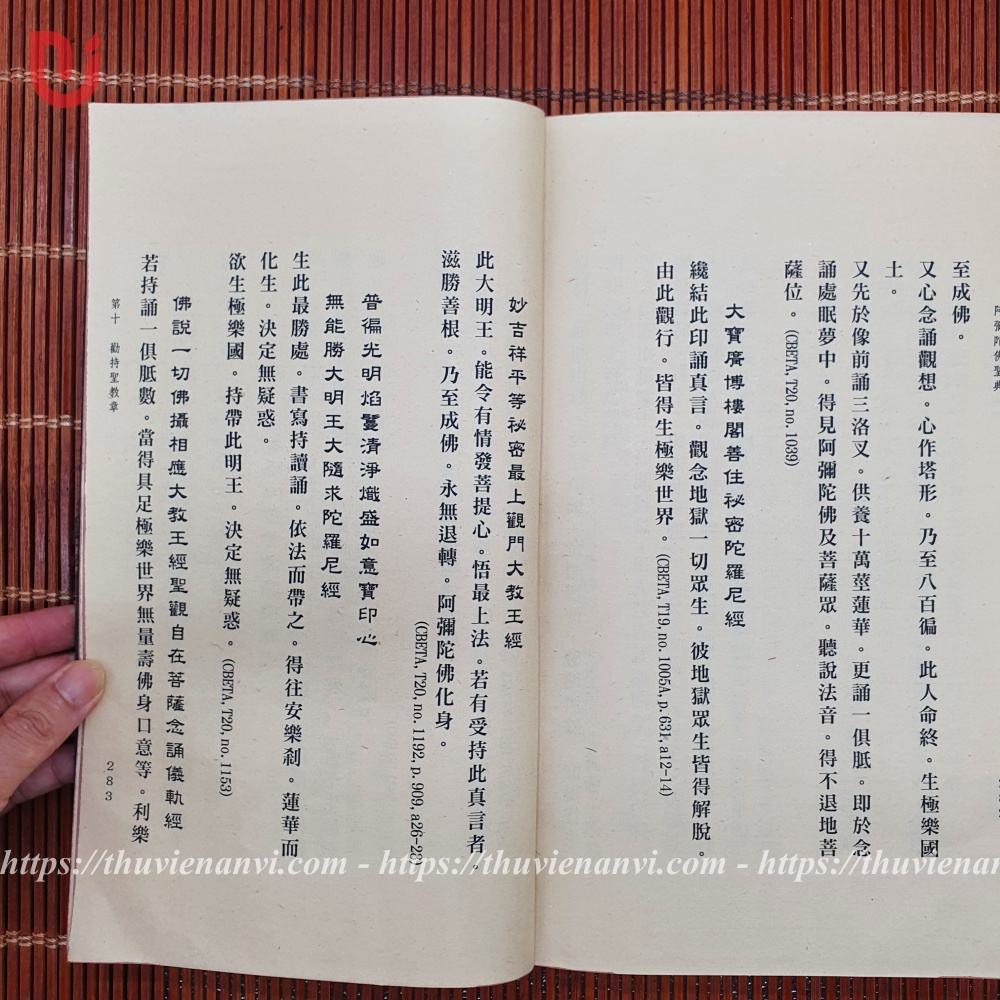 阿彌陀佛聖典
至成佛。
又心念誦觀想。心作塔形。乃至八百徧。此人命終。生極樂國
土。
又先於像前誦三洛叉。供養十萬莖蓮華。更誦一俱胝。即於念
誦處眠夢中。得見阿彌陀佛及菩薩眾。聽說法音。得不退地菩
薩位。(CBETA, T20, no. 1039)
大寶廣博樓閣善住祕密陀羅尼經
纔結此印誦真言。觀念地獄一切眾生。彼地獄眾生皆得解脫。
由此觀行。皆得生極樂世界。(CBETA, T19, no. 1005A, p. 631, a12-14)
妙吉祥平等祕密最上觀門大教王經
此大明王。能令有情發菩提心。悟最上法。若有受持此真言者。
滋勝善根。乃至成佛。永無退轉。阿彌陀佛化身。
(CBETA, T20, no. 1192, p. 909, a26-28)
普徧光明焰鬘清淨熾盛如意寶印心
無能勝大明王大隨求陀羅尼經
生此最勝處。書寫持讀誦。依法而帶之。得往安樂剎。蓮華而
化生。決定無疑惑。
欲生極樂國。持帶此明王。決定無疑惑。(CBETA, T20, no. 1153)
佛說一切佛攝相應大教王經聖觀自在菩薩念誦儀軌經
若持誦一俱胝數。當得具足極樂世界無量壽佛身口意等。利樂
第十 勸持聖教章
283
https://thuvienanvi.com - https://thuvienanvi.com - https://thuvienanvi